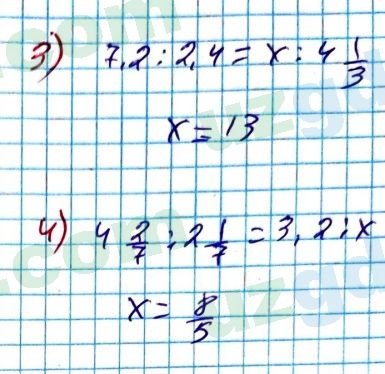 3) 7,2 : 2,4 = x : 4 1/3
x = 13
4) 4 2/7 : 2 1/7 = 3,2 : x
x = 8/5